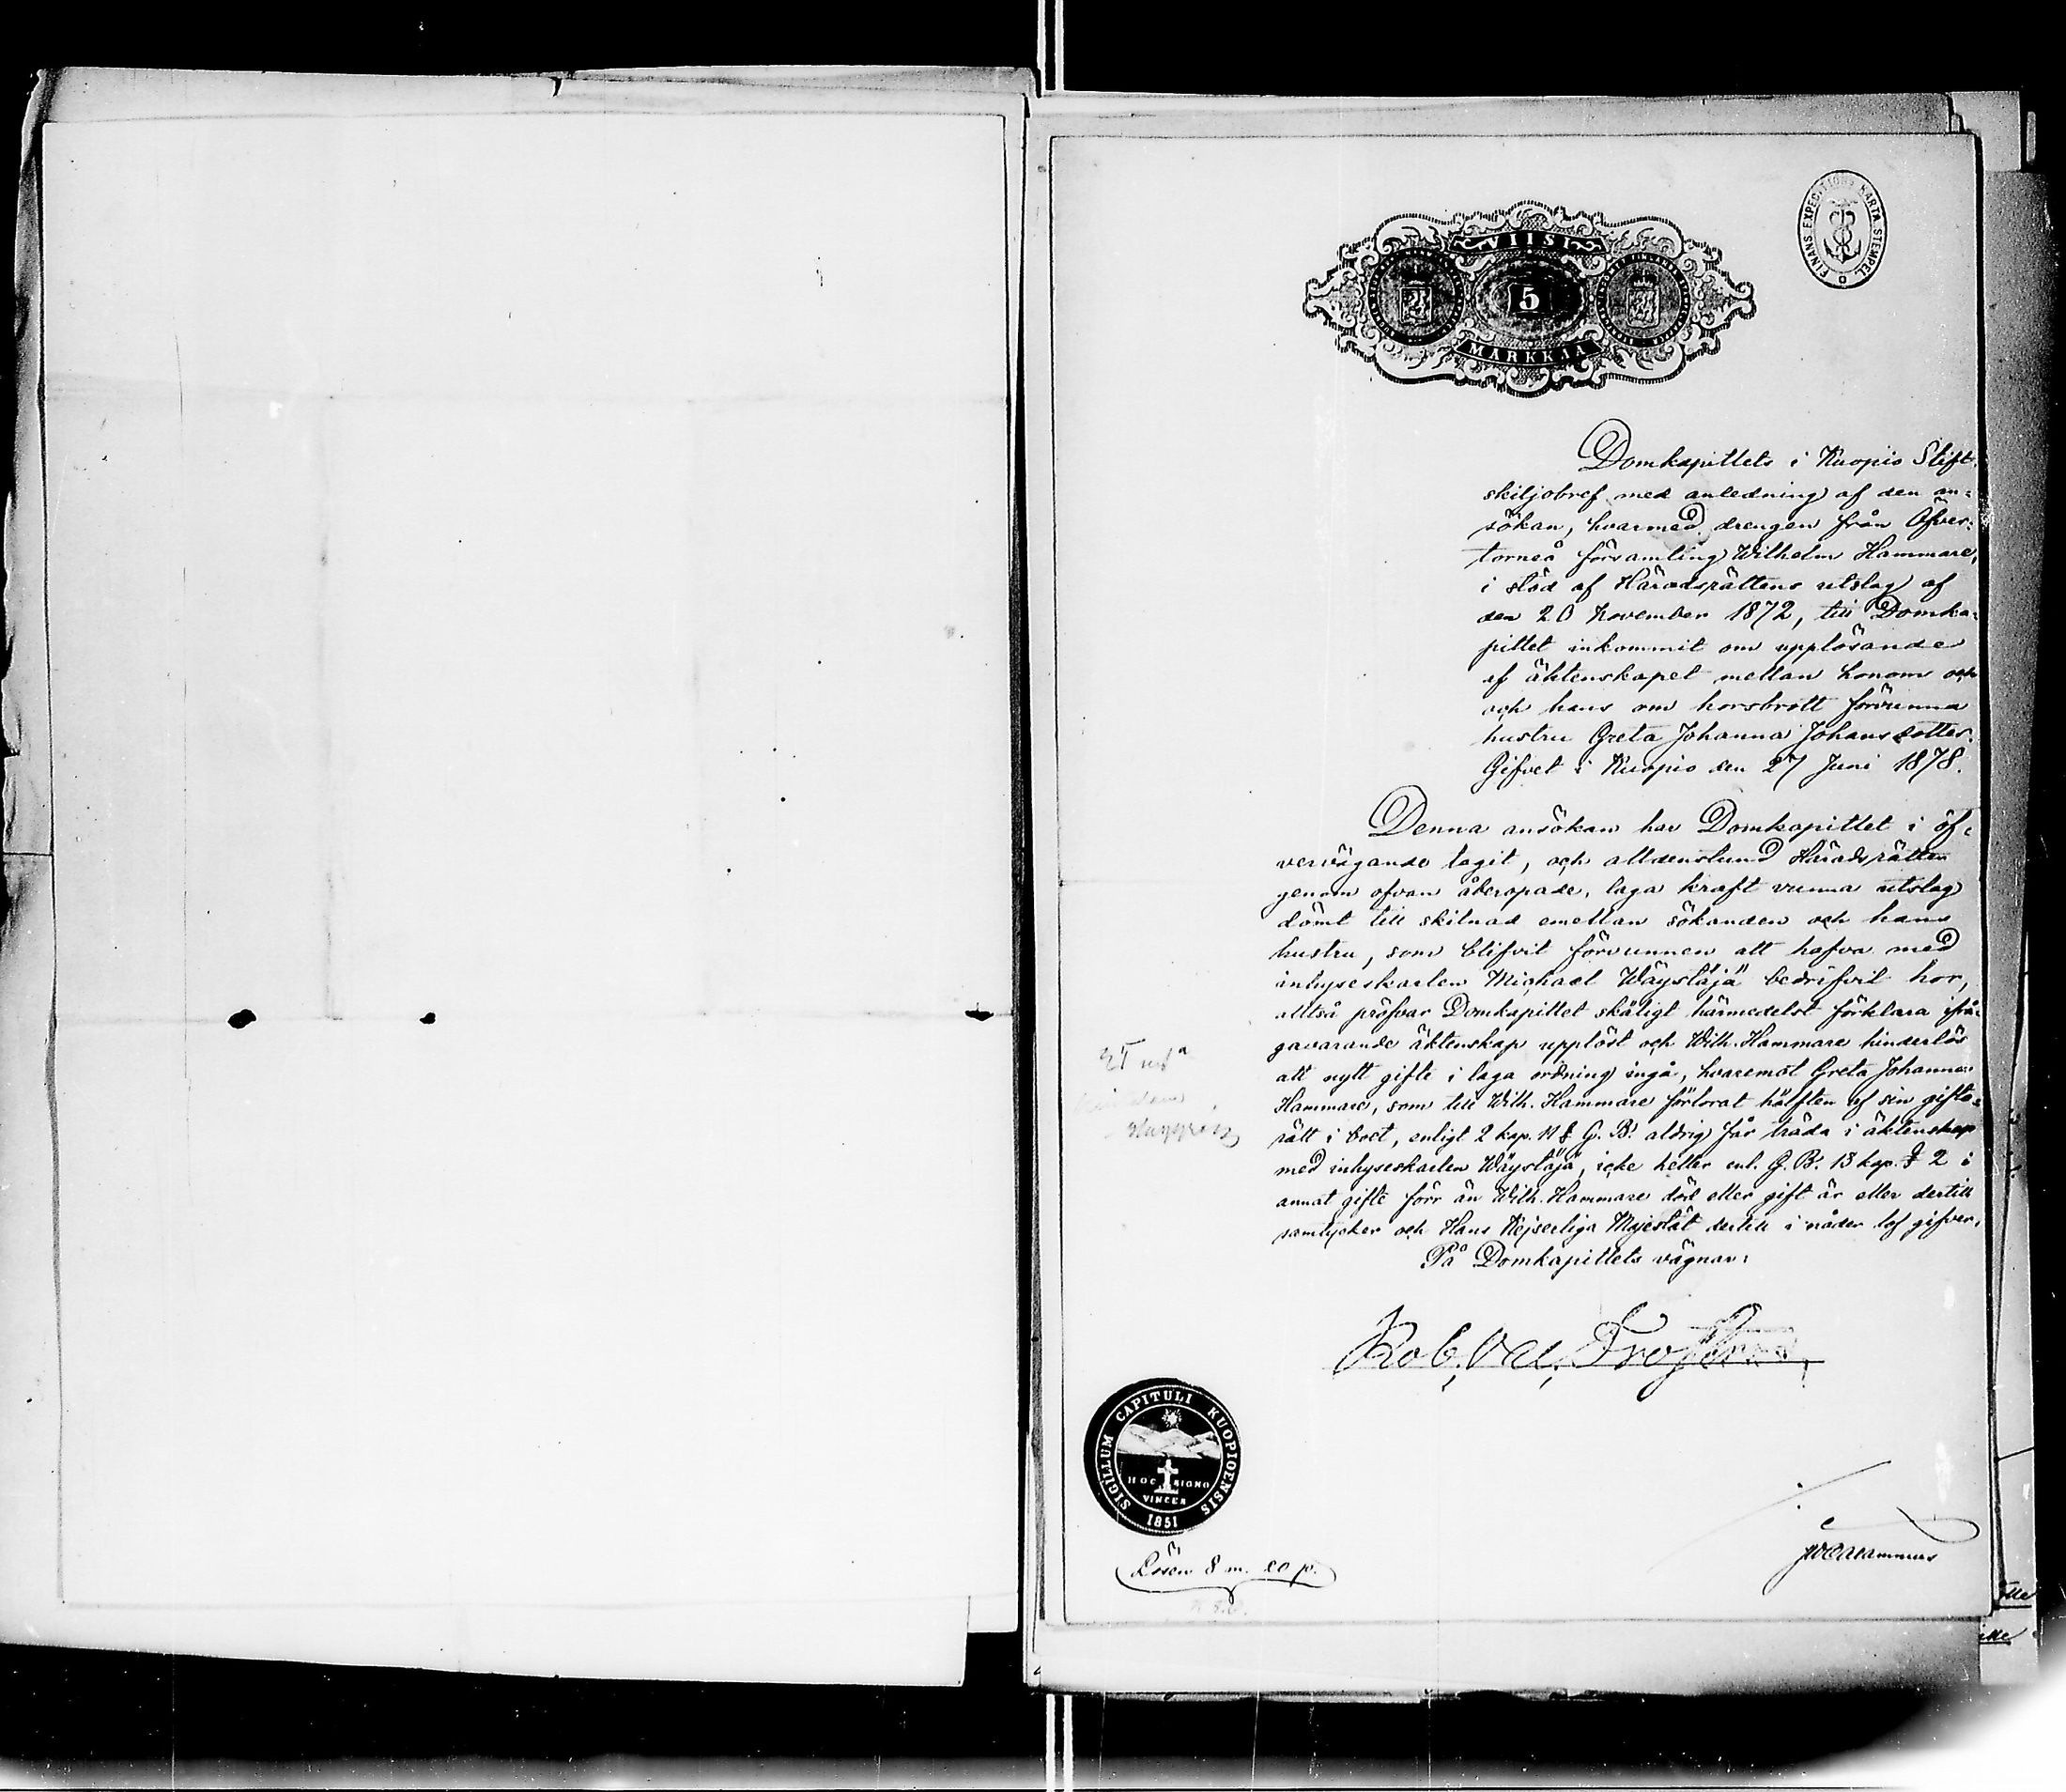 FINANS EXPEDITIONS KARTA STEMPEL
VIISI
5
MARKKAA
Domkapitlets i Kuopio Stift
skiljobref med anledning af den an-
sökan, hvarmed drengen från Öfver-
torneå församling Wilhelm Hammare,
i stöd af Häradsrättens utslag af
den 20 November 1872, till Domka-
pitlet inkommit om upplösande
af äktenskapet mellan honom och
och hans om horsbrott förvunna
hustru Greta Johanna Johansdotter.
Gifvet i Kuopio den 27 Juni 1878.
Denna ansökan har Domkapitlet i öf-
vervägande tagit, och alldenstund Häradsrätten
genom ofvan åberopade, laga kraft vunna utslag
dömt till skilnad emellan sökanden och hans
hustru, som blifvit förvunnen att hafva med
inhyseskarlen Michael Wäystäjä bedrifvit hor,
alltså pröfvar Domkapitlet skäligt härmedelst förklara ifrå-
gavarande äktenskap upplöst och Wilh. Hammare hinderlös
att nytt gifte i laga ordning ingå, hvaremot Greta Johanna
Hammare, som till Wilh. Hammare förlorat hälften af sin gifto-
rätt i boet, enligt 2 kap. 11 § G. B. aldrig får träda i äktenskap
med inhyseskarlen Wäystäjä, icke heller enl. G. B. 13 kap. § 2 i
annat gifte förr än Wilh. Hammare död eller gift är eller dertill
samtycker och Hans Kejserliga Majestät dertill i nåder lof gifver.
På Domkapitlets vägnar:
Rob. Val. Frosterus
SIGILLUM CAPITULI KUOPIOENSIS
HOC SIGNO
VINCES
1851
Lösen 8 m. 20 p.